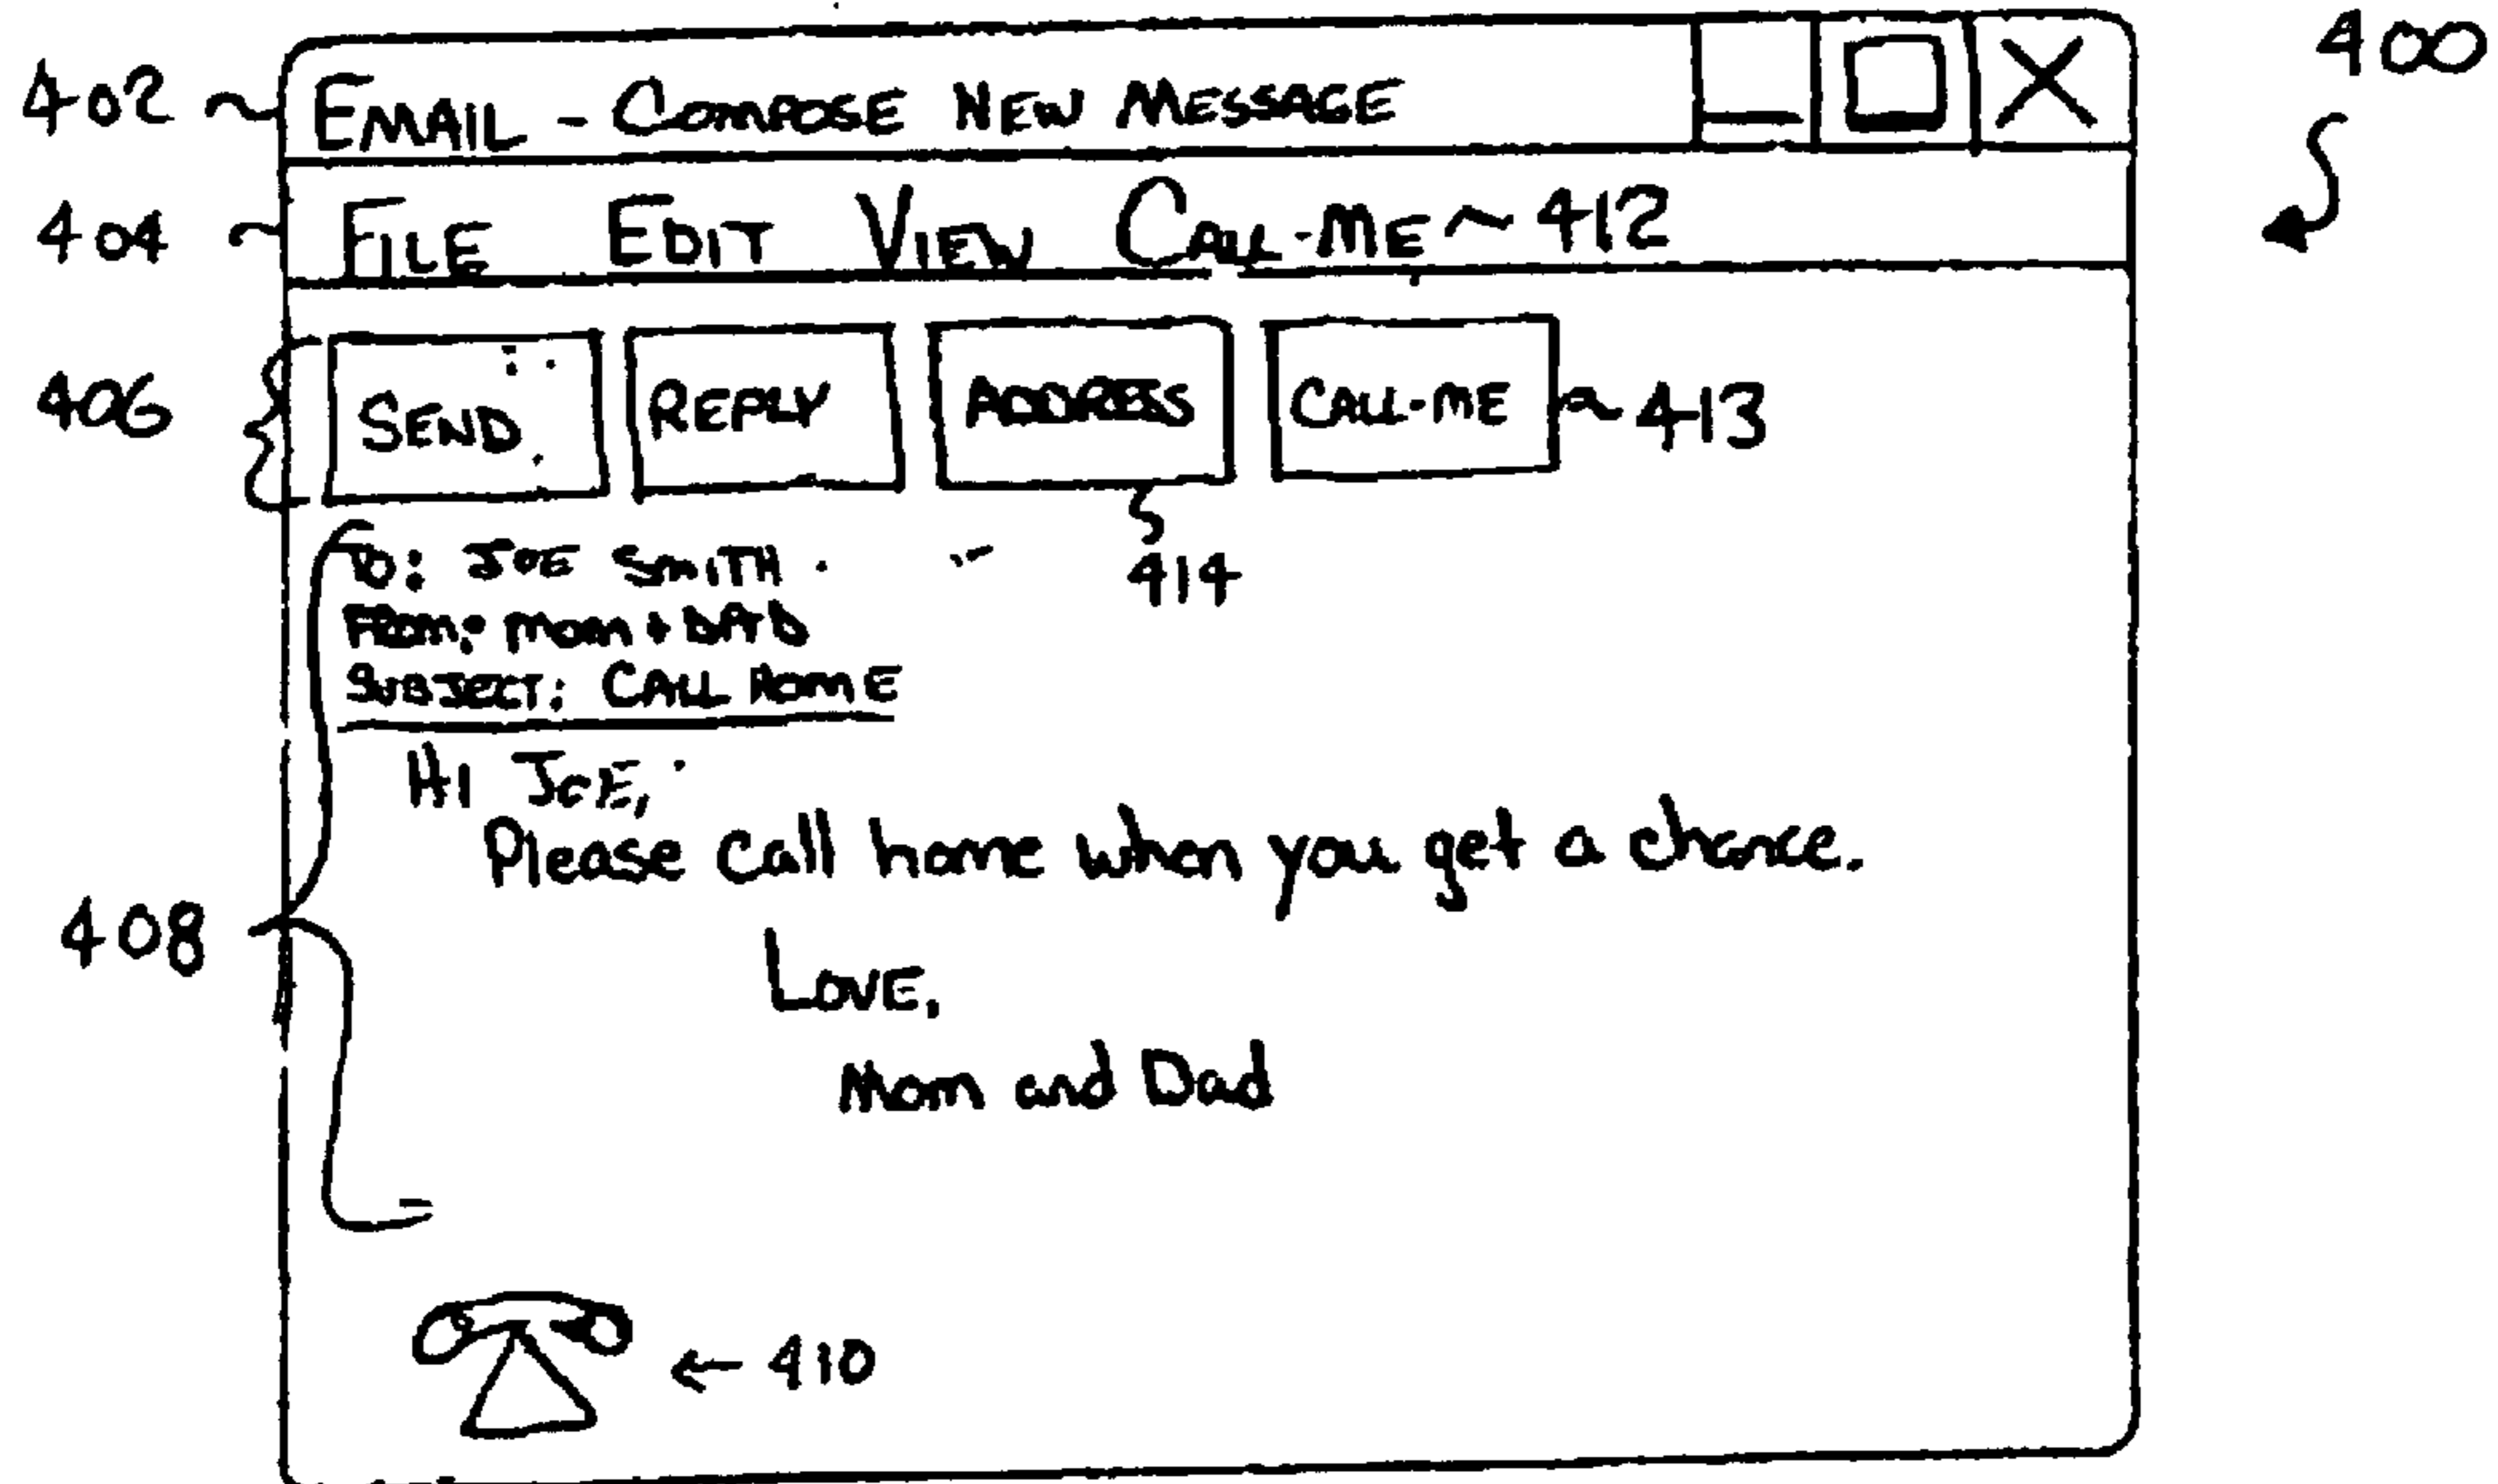 400
402 EMAIL - COMPOSE NEW MESSAGE
404 FILE EDIT VIEW CALL-ME 412
406 SEND REPLY ADDRESS CALL-ME 413
414
TO: JOE SMITH
FROM: MOM & DAD
SUBJECT: CALL HOME
HI JOE,
Please call home when you get a chance.
408
LOVE,
Mom and Dad
410